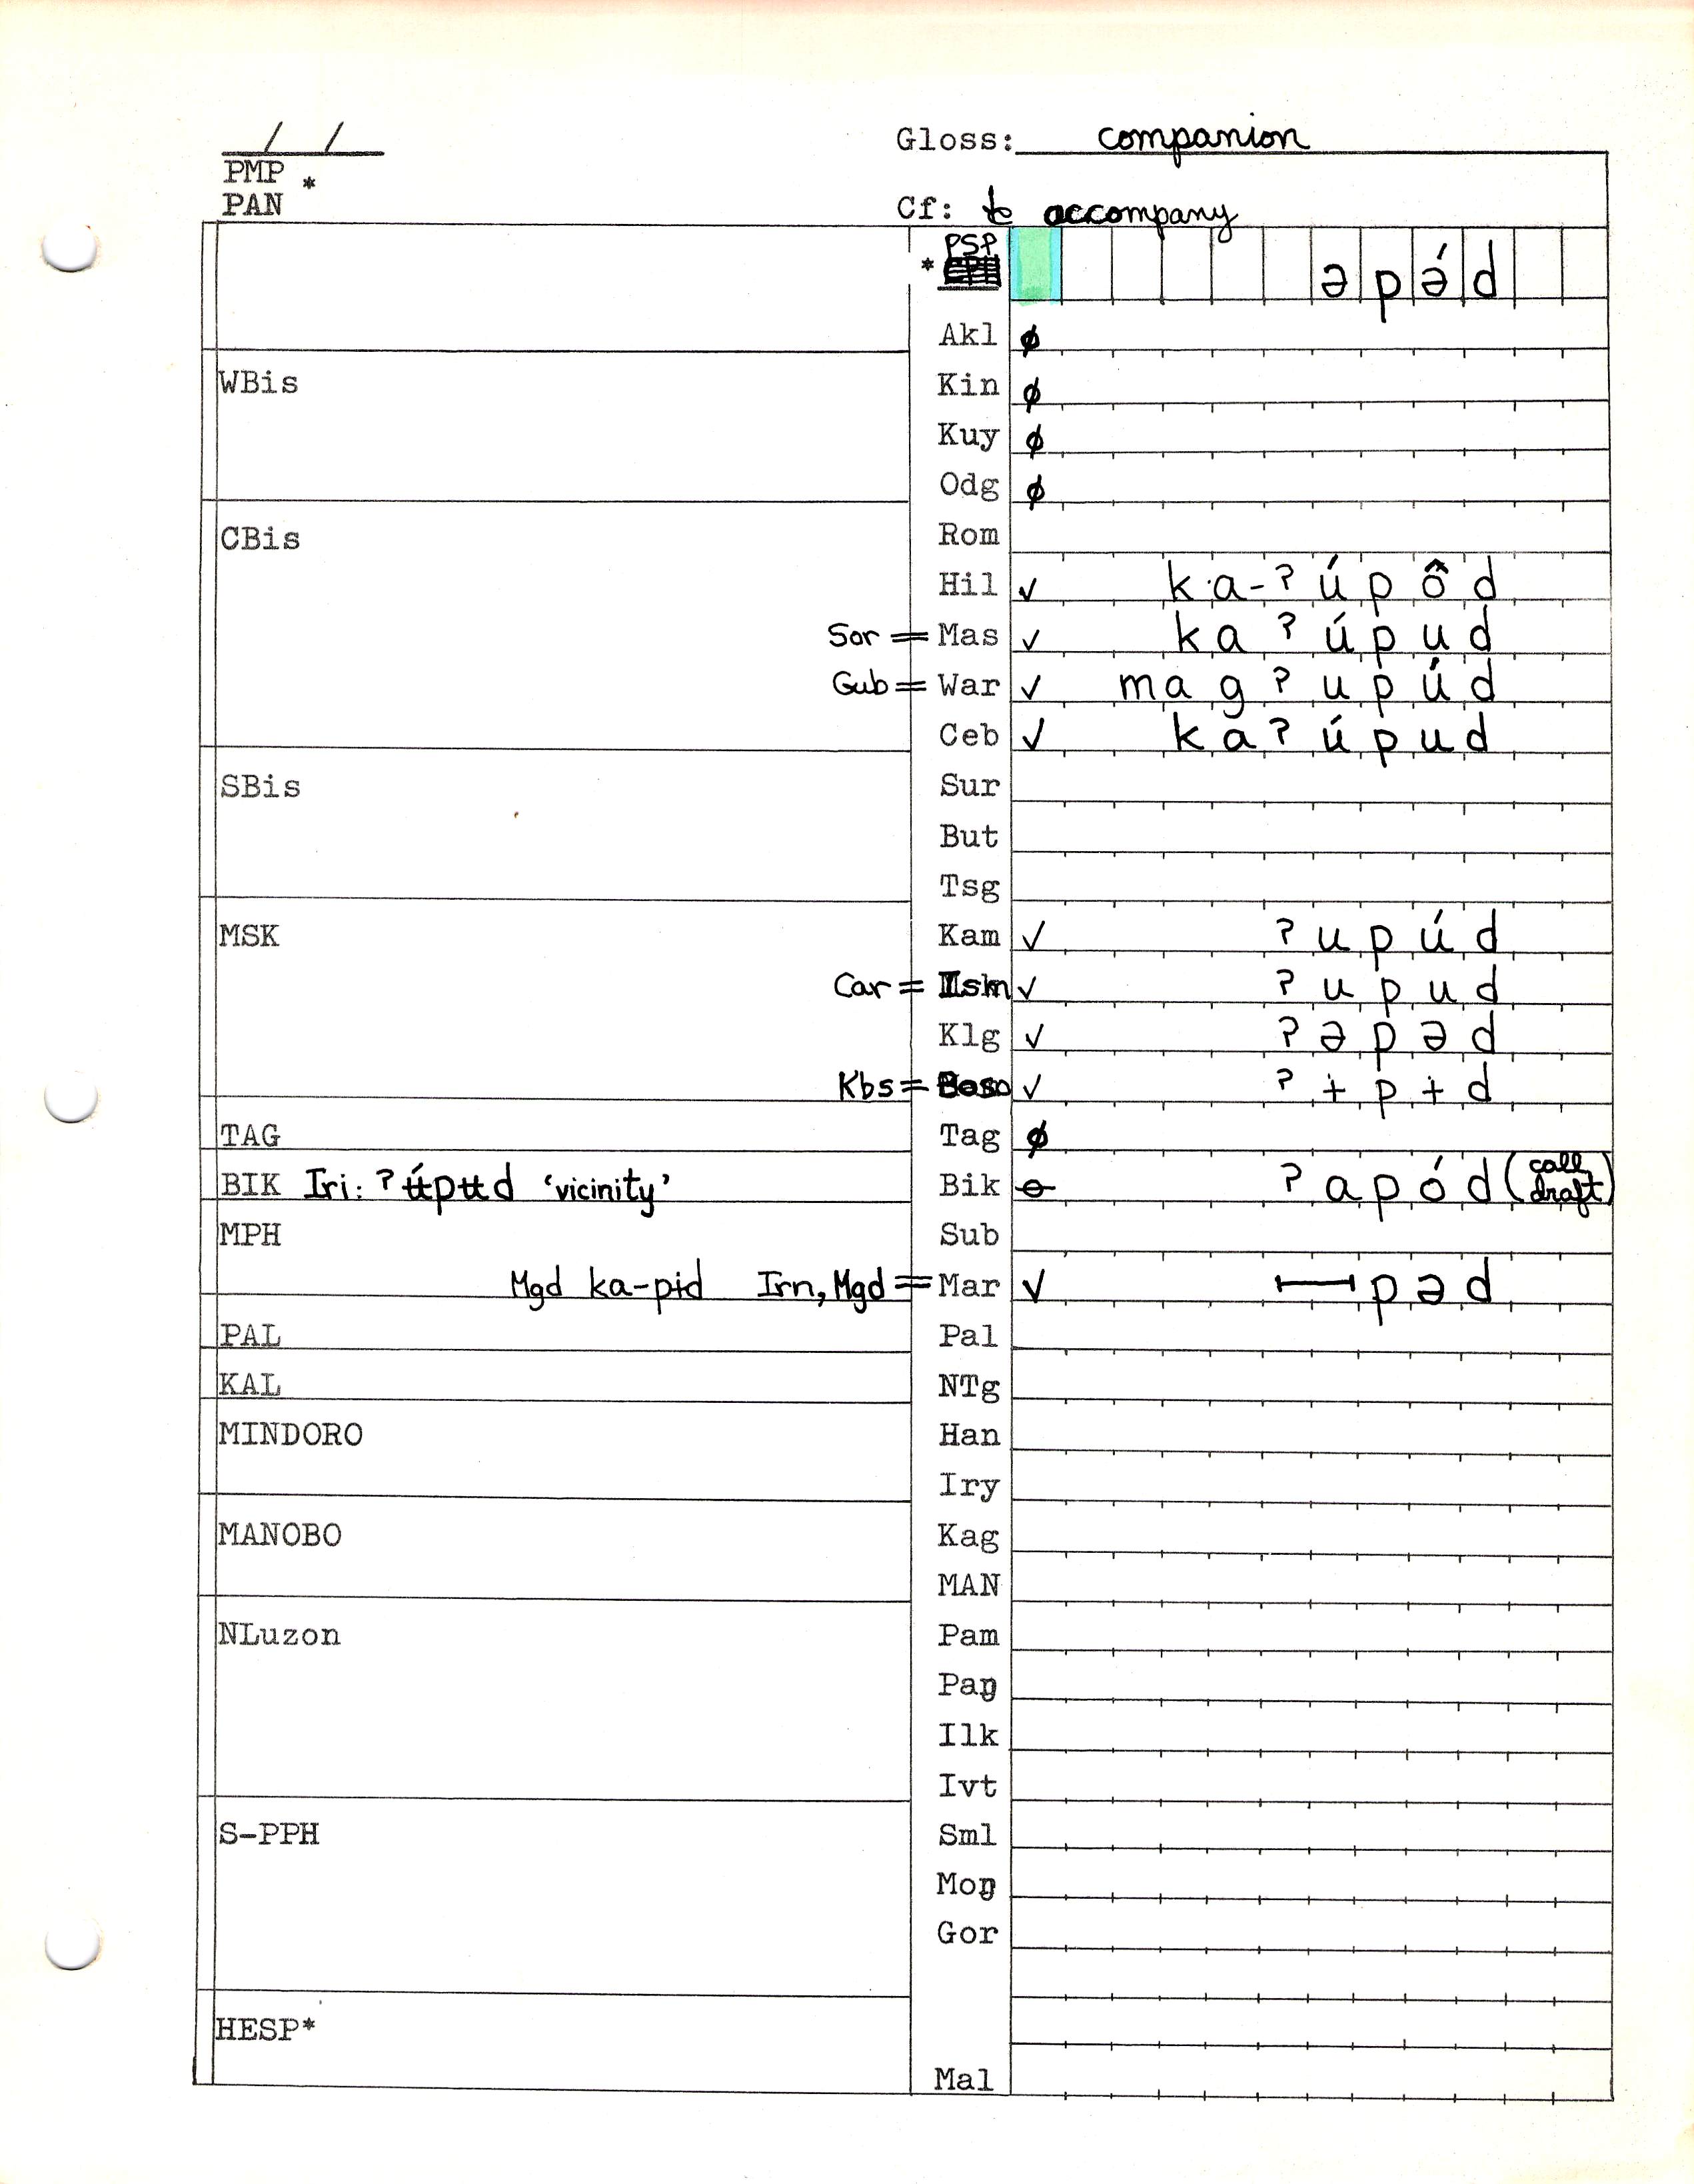 / /
Gloss: companion
PMP *
PAN
Cf: to accompany
* PSP əpə́d
Akl ø
WBis
Kin ø
Kuy ø
Odg ø
CBis
Rom
Hil ✓ ka-ʔúpôd
Sor = Mas ✓ kaʔúpud
Gub = War ✓ magʔupúd
Ceb ✓ kaʔúpud
SBis
Sur
But
Tsg
MSK
Kam ✓ ʔupúd
Car = Ism ✓ ʔupud
Klg ✓ ʔəpəd
Kbs = ✓ ʔɨpɨd
TAG
Tag ø
BIK Iri: ʔʉ́pʉd 'vicinity'
Bik ɵ ʔapód (call, draft)
MPH
Sub
Mgd ka-pɨd Irn, Mgd = Mar ✓ pəd
PAL
Pal
KAL
NTg
MINDORO
Han
Iry
MANOBO
Kag
MAN
NLuzon
Pam
Paŋ
Ilk
Ivt
S-PPH
Sml
Moŋ
Gor
HESP*
Mal